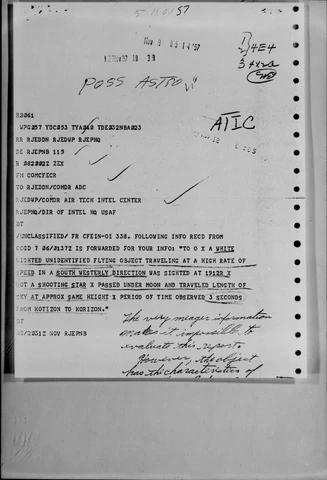 Nov 8 05 14 '57
4E4
POSS ASTRO
ATIC
RB061
WPG257 YDC053 TYA242 TDE032NBA023
RR RJEDON RJEDWP RJEPHQ
DE RJEPNB 115
R 082022Z ZEX
FM COMCFECR
TO RJEDON/COMDR ADC
RJEDWP/COMDR AIR TECH INTEL CENTER
RJEPHQ/DIR OF INTEL HQ USAF
BT
/UNCLASSIFIED/ FR CFEIN-OI 338. FOLLOWING INFO RECD FROM
CCGD 7 06/2137Z IS FORWARDED FOR YOUR INFO: "TO O X A WHITE
LIGHTED UNIDENTIFIED FLYING OBJECT TRAVELING AT A HIGH RATE OF
SPEED IN A SOUTH WESTERLY DIRECTION WAS SIGHTED AT 1912R X
NOT A SHOOTING STAR X PASSED UNDER MOON AND TRAVELED LENGTH OF
SKY AT APPROX SAME HEIGHT X PERIOD OF TIME OBSERVED 3 SECONDS
FROM HOTIZON TO HORIZON."
BT
NOV RJEPNB
The very meager information
makes it impossible to
evaluate this report.
However, the object
has the characteristics of